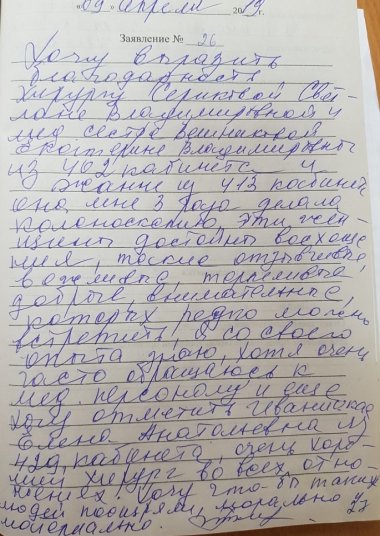 «09» апрели 2019г.
Заявление № 26
Хочу выразить
благодарность
хирургу Сериктвой Свет-
лане Владимировной и
мед сестра
Екатерине Владимировны
из 402 кабинета и
Жанне из 413 кабинет
она мне 3 раза делала
колоноскопию, эти жен-
щины достойны восхище
ния, такие отзывчивые
вежливые, терпеливые,
добрые, внимательные,
которых редко можно
встретить, я со своего
опыта знаю, хотя очень
часто обращаюсь к
мед. персоналу и еще
хочу отметить
Елена Анатольевна из
429 кабинета, очень хоро-
ший хирург во всех отно-
шениях. Хочу что бы таких
людей поощряли морально и
материально.